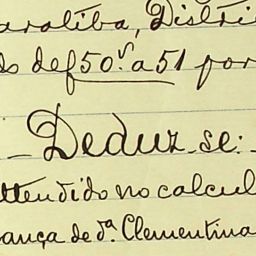 aratiba, Distri
do de f 50.v a 51 por
— Deduz-se: -
ttendido no calcul
ança de d.ª Clementina